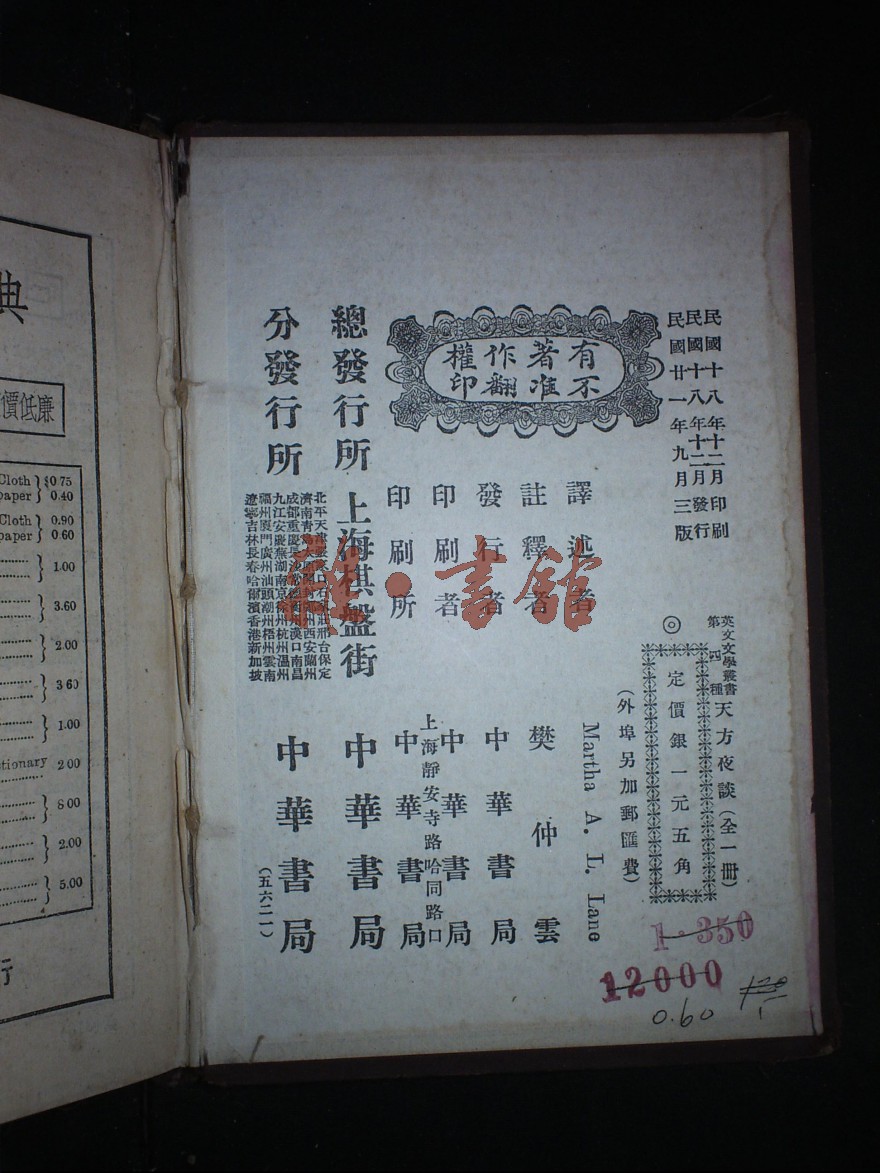 民國十八年十二月印刷
民國十八年十二月發行
民國廿一年九月三版
英文文學叢書
第四種
天方夜談(全一冊)
◎
定價銀一元五角
(外埠另加郵匯費)
有著作權
不准翻印
譯述者 Martha A. L. Lane
註釋者 樊仲雲
發行者 中華書局
印刷者 中華書局
上海靜安寺路哈同路口
印刷所 中華書局
總發行所 上海棋盤街 中華書局
分發行所
北平天津
口石家莊邢台保定
濟南青島太原開封鄭州西安蘭州
成都重慶長沙常德衡州漢口南昌
九江安慶蕪湖南京徐州杭州溫州
福州廈門廣州汕頭潮州梧州雲南
遼寧吉林長春哈爾濱香港新加坡
中華書局
(五六二一)
書舘
1.350
12000
0.60
典
價低廉
Cloth $0.75
paper 0.40
Cloth 0.90
paper 0.60
1.00
3.60
2.00
3.60
1.00
tionary 2.00
8.00
2.00
5.00
行